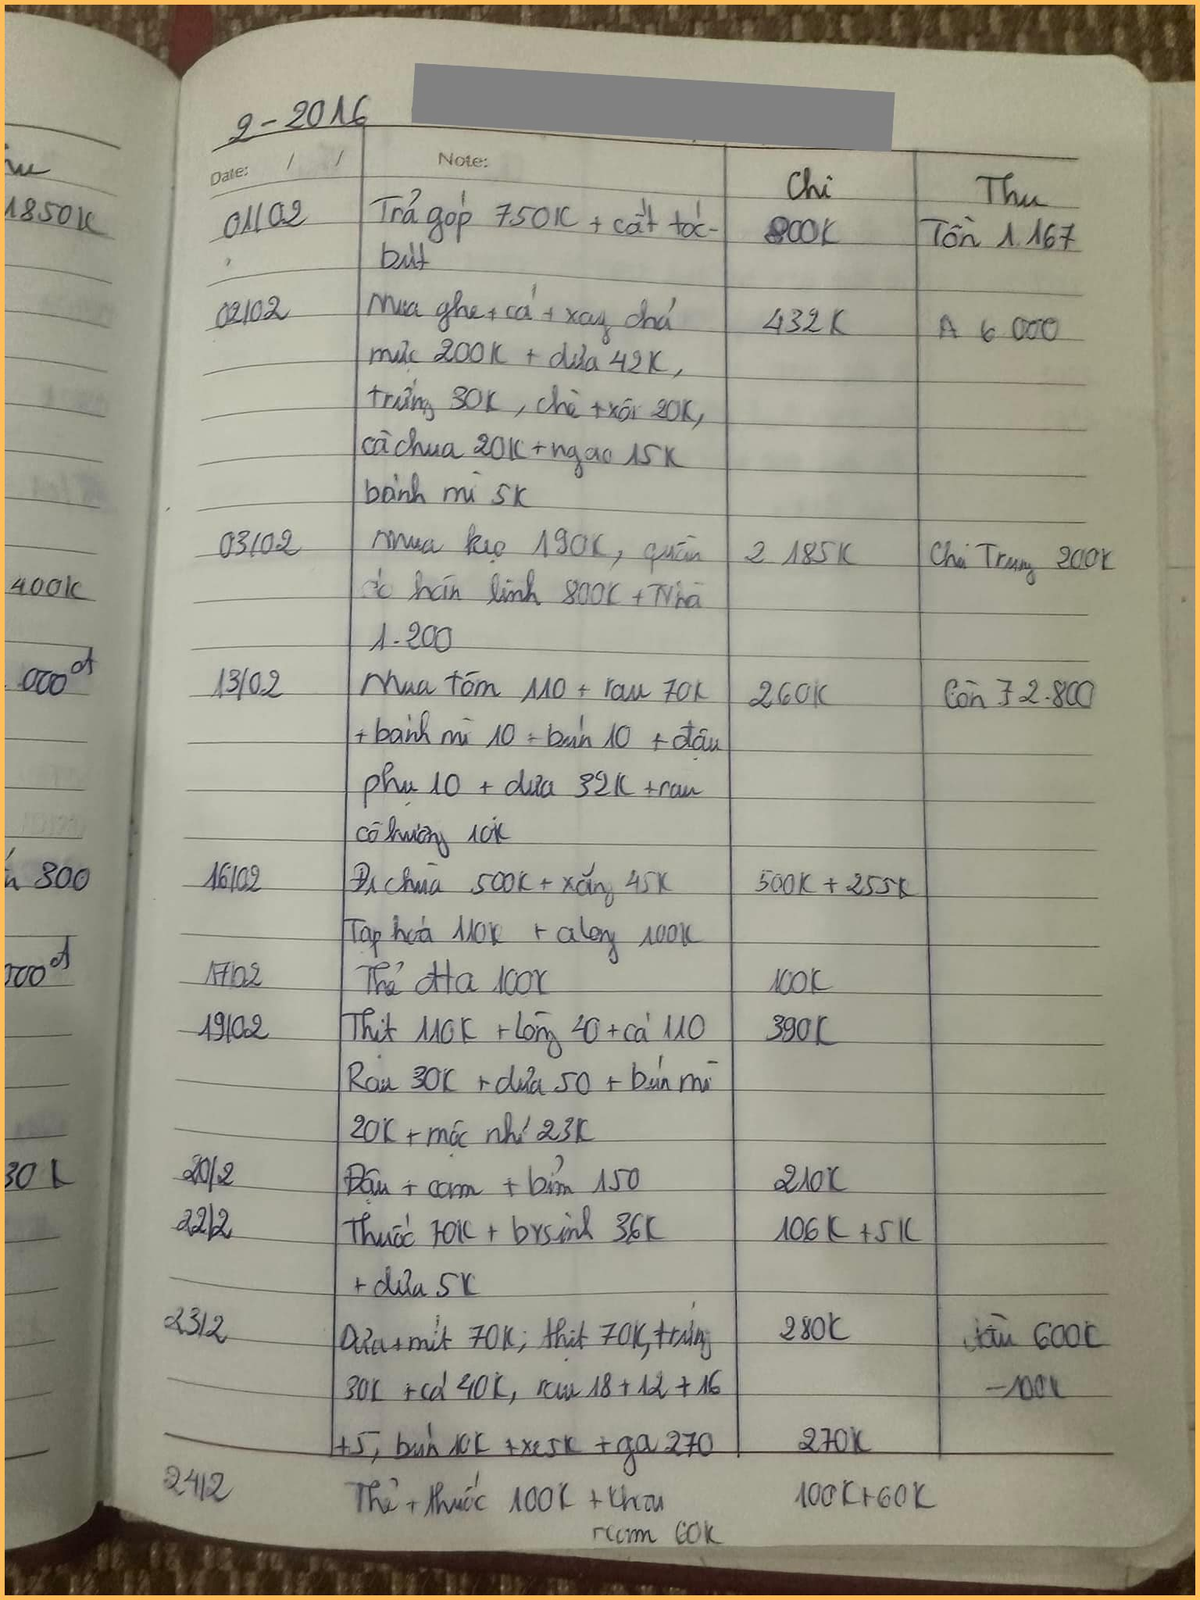 1850K
400K
000đ
800
000đ
30K
2-2016
Date: / / Note: Chi Thu
01/02 Trả góp 750K + cắt tóc- 800K Tồn 1.167
bút
02/02 Mua ghẹ + cá + xay chả 432K A 6.000
mực 200K + dứa 42K,
trứng 30K, chè + xôi 20K,
cà chua 20K + ngao 15K
bánh mì 5K
03/02 Mua kẹo 190K, quần 2.185K Chú Trung 200K
800K + Nhà
1.200
13/02 Mua tôm 110 + rau 70K 260K Còn 72.800
+ bánh mì 10 + bún 10 + đậu
phụ 10 + dưa 32K + rau
cô hương 10K
16/02 Đi chùa 500K + xăng 45K 500K + 255K
Tạp hoá 110K + along 100K
17/02 Thẻ 100K 100K
19/02 Thịt 110K + lòng 40 + cá 110 390K
Rau 30K + dứa 50 + bún mì
20K + mộc nhĩ 23K
20/2 Đậu + cam + bỉm 150 210K
22/2 Thuốc 70K + bvsinh 36K 106K + 5K
+ dứa 5K
23/2 Dứa + mít 70K; thịt 70K, trứng 280K 600K
30K + cá 40K, rau 18 + 12 + 16 -100K
+5, bún 10K + xe 5K + ga 270 270K
24/2 Thẻ + thuốc 100K + 100K + 60K
60K